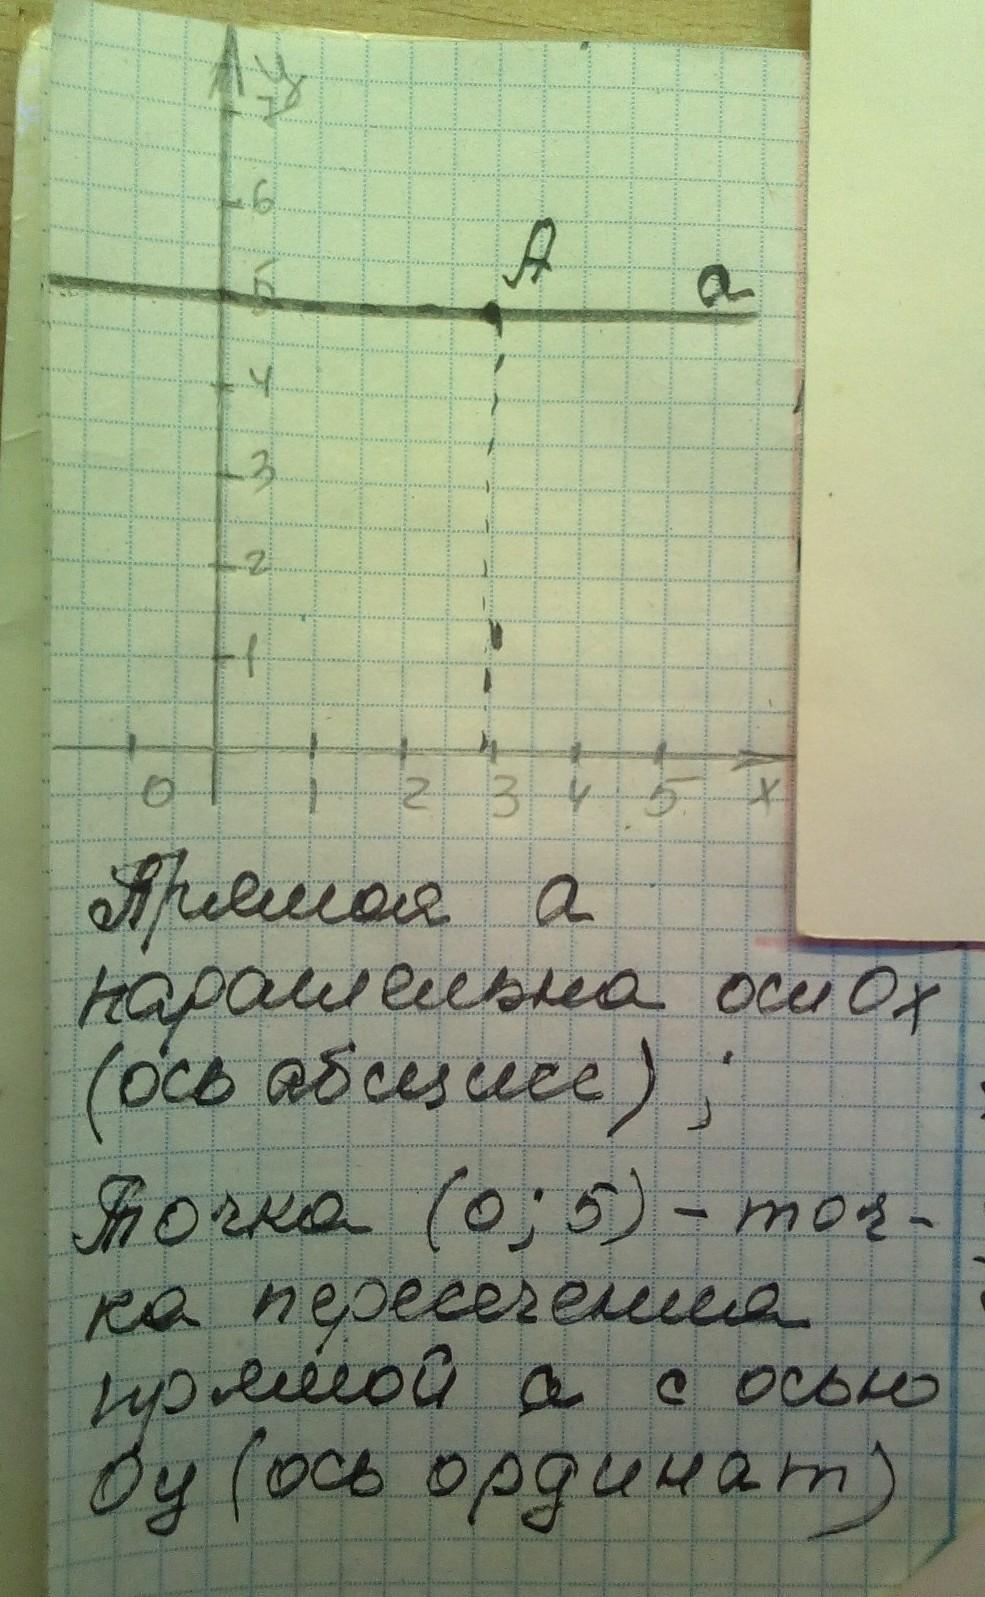 у
7
6
А
5
а
4
3
2
1
0 1 2 3 4 5 х
Прямая а
параллельна оси Ох
(ось абсцисс) ;
Точка (0; 5) - точ-
ка пересечения
прямой а с осью
Оу (ось ординат)